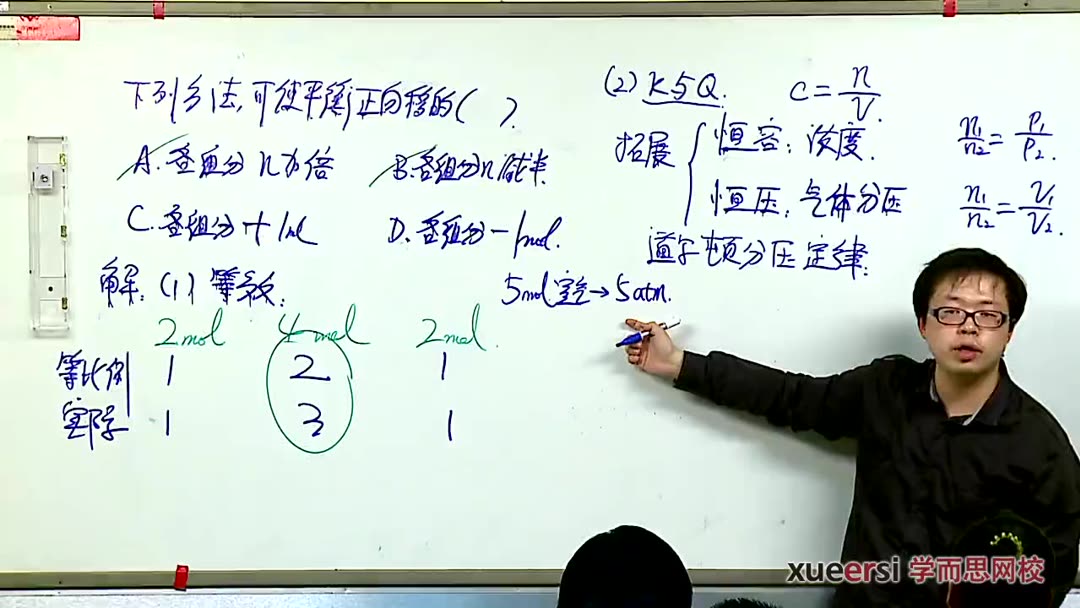 下列方法,可使平衡正向移的( ).
A.各组分n加倍
B.各组分n减半
C.各组分+1mol
D.各组分-1mol.
解:(1)等效:
2mol 4mol 2mol.
等比例 1 2 1
实际 1 3 1
(2) K与Q. C=n/V.
拓展
恒容:浓度.
恒压:气体分压
n1/n2=P1/P2.
n1/n2=V1/V2.
道尔顿分压定律:
5mol空气→5atm.
xueersi 学而思网校